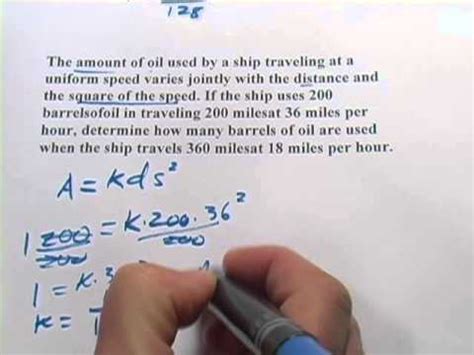 128
The amount of oil used by a ship traveling at a
uniform speed varies jointly with the distance and
the square of the speed. If the ship uses 200
barrelsofoil in traveling 200 milesat 36 miles per
hour, determine how many barrels of oil are used
when the ship travels 360 milesat 18 miles per hour.
A = Kds²
1 200 = K·200·36²
200 200
1 = K·3
K =
1